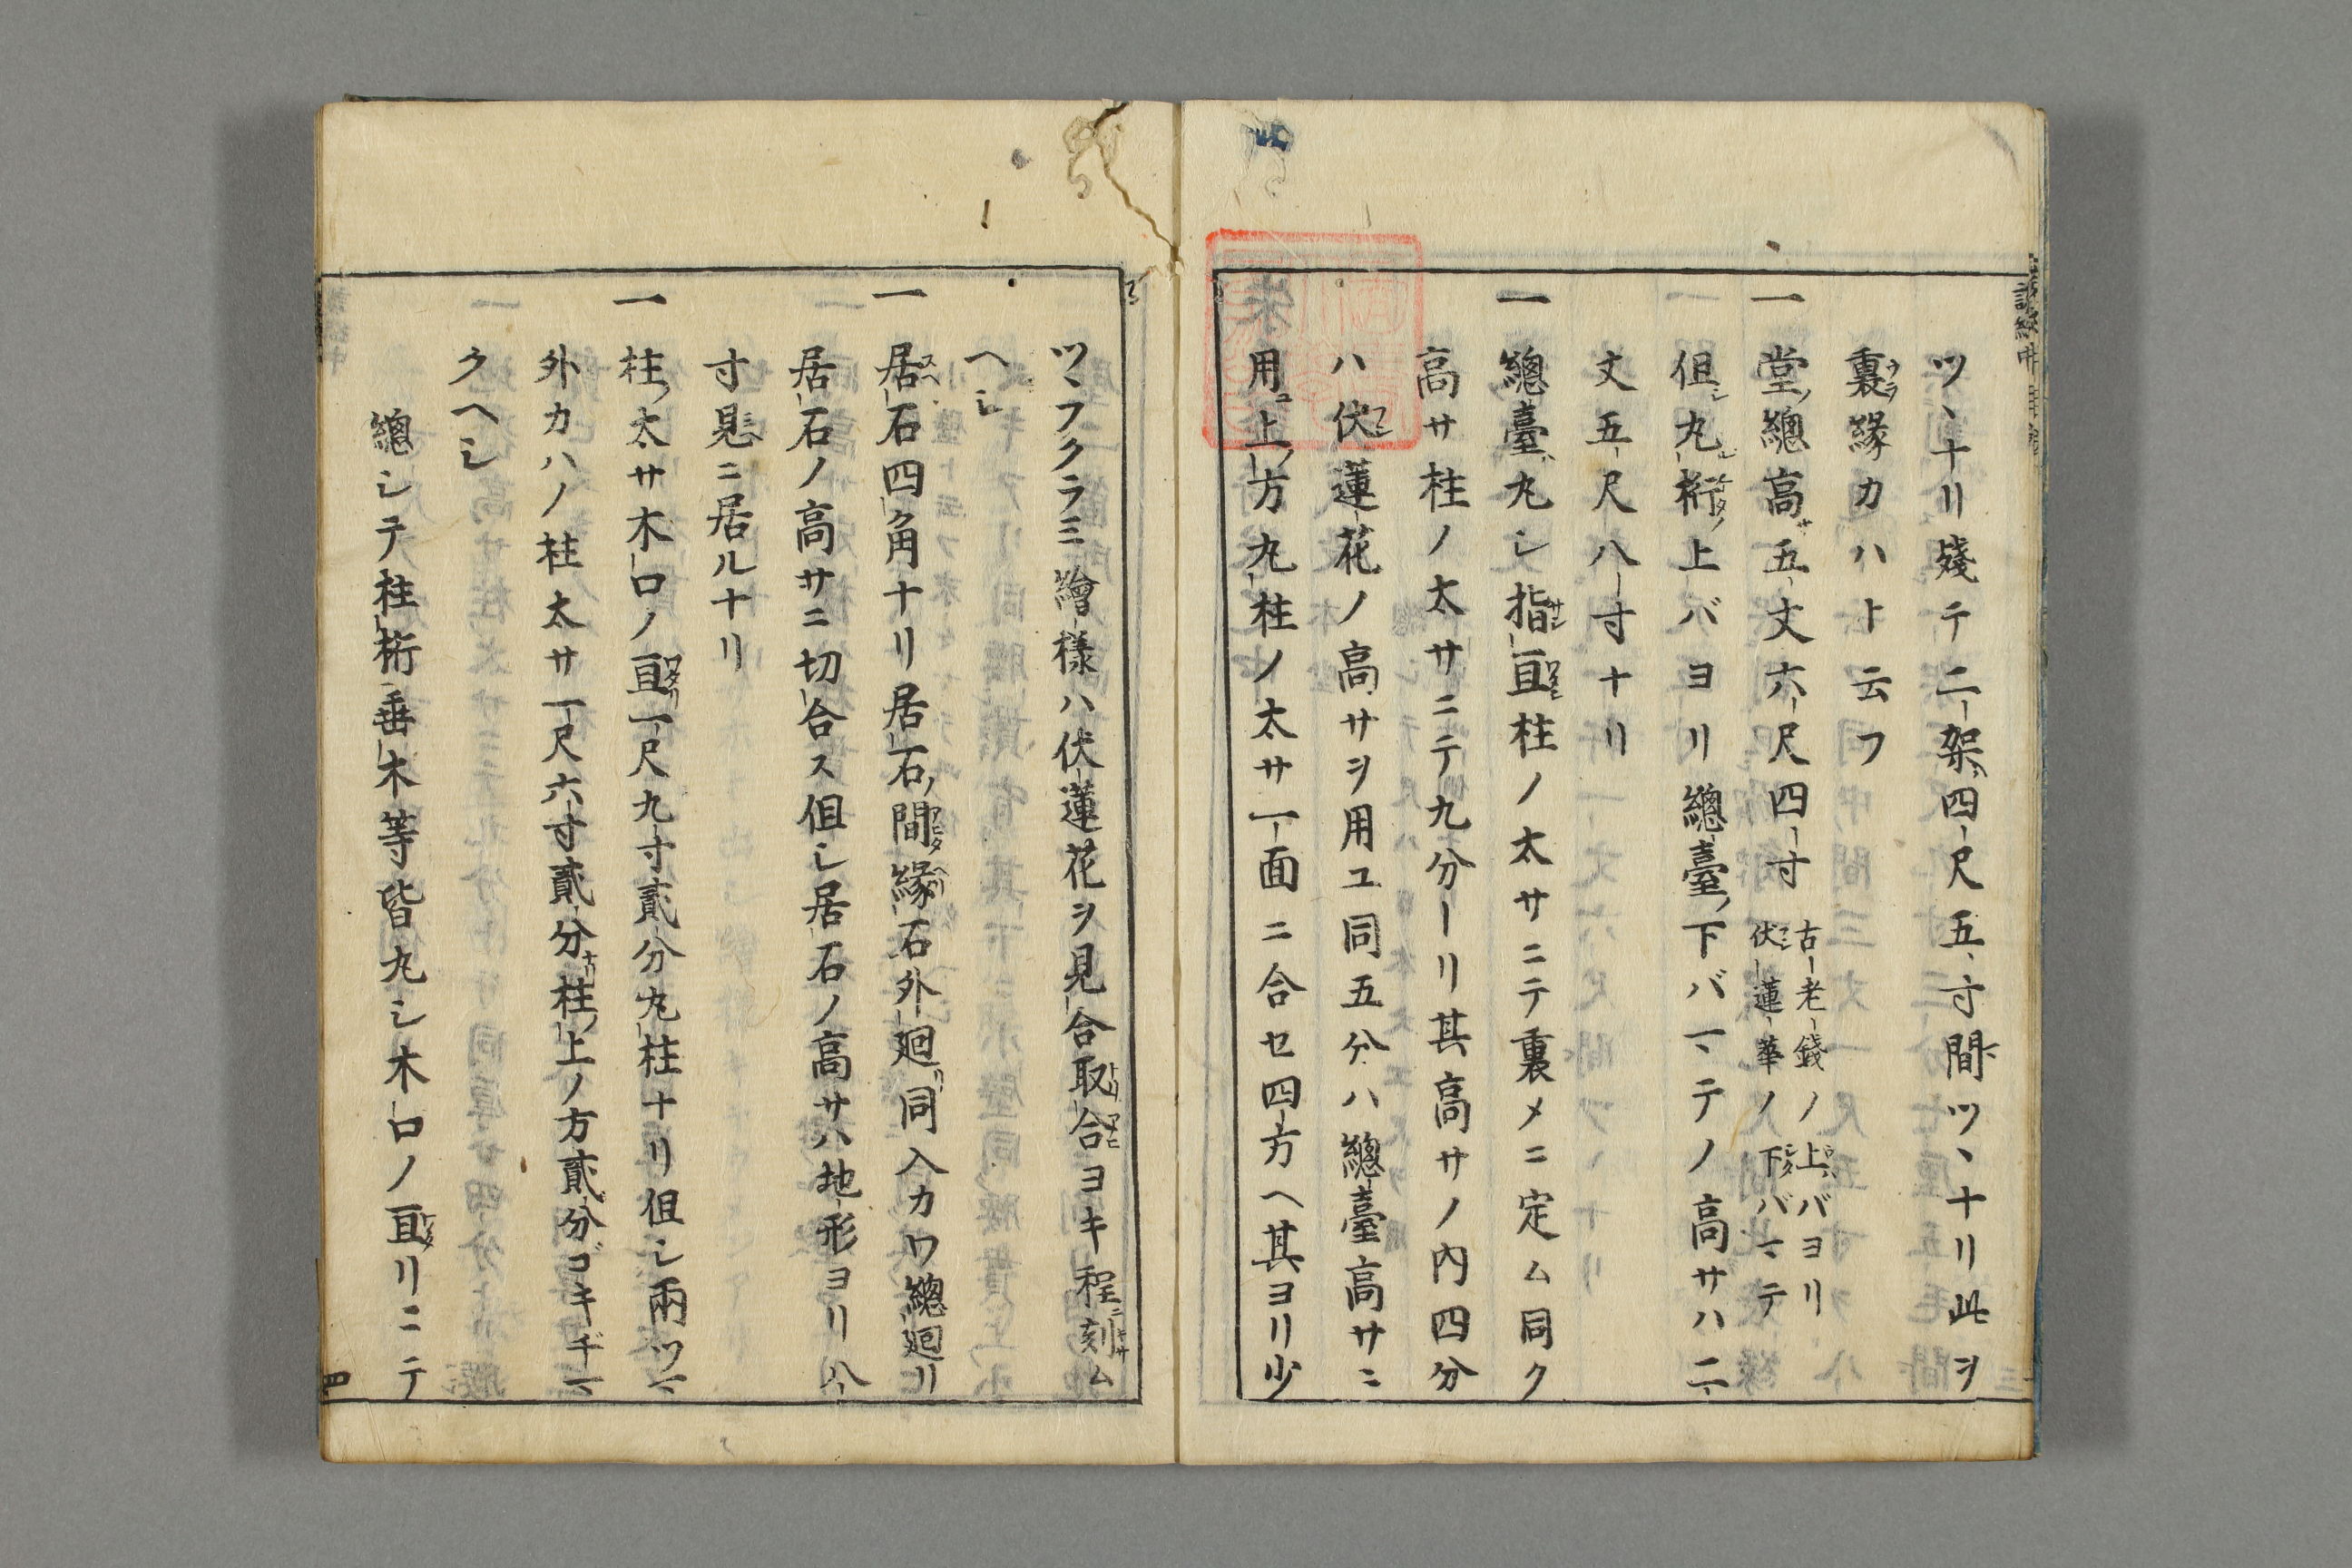 ツヽナリ殘テ二架四尺五寸間ツヽナリ此ヲ
裏縁カハト云フ
一堂ノ總高サ五丈六尺四寸古老錢ノ上バヨリ
伏蓮華ノ下バマテ
但シ丸桁ノ上バヨリ總臺ノ下バマテノ高サハ二
丈五尺八寸ナリ
一總臺丸シ指亘柱ノ太サニテ裏メニ定ム同ク
高サ柱ノ太サニテ九分一リ其高サノ内四分
ハ伏蓮花ノ高サヲ用ユ同五分ハ總臺高サニ
用ユ上ノ方丸柱ノ太サ一面ニ合セ四方ヘ其ヨリ少
ツヽフクラミ繪様ハ伏蓮花ヲ見合取合ヨキ程ニ刻ム
ヘシ
一居石四角ナリ居石ノ間縁石外廻リ同入カワ總廻リ
居石ノ高サニ切合ス但シ居石ノ高サハ地形ヨリ八
寸見ニ居ルナリ
一柱ノ太サ木口ノ亘一尺九寸貳分丸柱ナリ但シ兩ツマ
外カハノ柱太サ一尺六寸貳分柱ノ上ノ方貳分ゴキヂマ
クヘシ
總シテ柱桁垂木等皆丸シ木口ノ亘リニテ
四